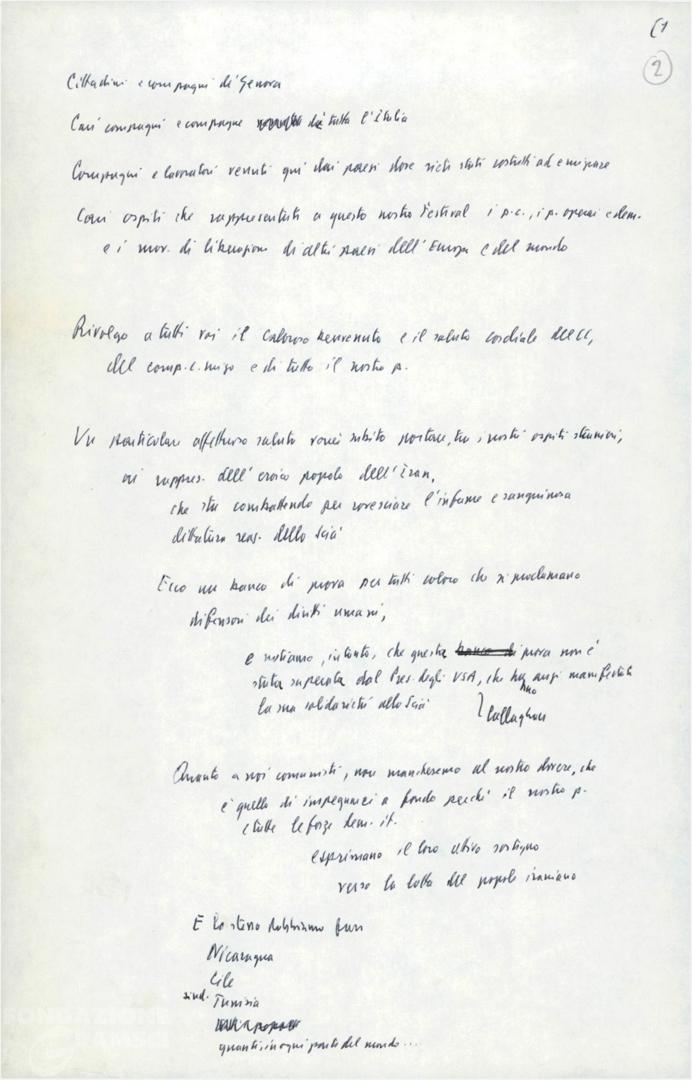 (1
2
Cittadini e compagni di Genova
Cari compagni e compagne di tutta l'Italia
Compagni e lavoratori venuti qui dai paesi dove siete stati costretti ad emigrare
Cari ospiti che rappresentati a questo nostro Festival i p.c., i p. operai e dem.
e i mov. di liberazione di altri paesi dell'Europa e del mondo
Rivolgo a tutti voi il caloroso benvenuto e il saluto cordiale del CC,
del comp. e di tutto il nostro p.
Un particolare affettuoso saluto vorrei subito portare, tra i nostri ospiti stranieri,
ai rappres. dell'eroico popolo dell'Iran,
che sta combattendo per rovesciare l'infame e sanguinosa
dittatura reaz. dello Scià
Ecco un banco di prova per tutti coloro che si proclamano
difensori dei diritti umani,
e notiamo, intanto, che questa prova non è
stata superata dal Pres. degli USA, che ha anzi manifestato
nno
la sua solidarietà allo Scià
Callaghan
Quanto a noi comunisti, non mancheremo al nostro dovere, che
è quello di impegnarci a fondo perché il nostro p.
e tutte le forze dem. it.
esprimano il loro attivo sostegno
verso la lotta del popolo iraniano
E lo stesso dobbiamo fare
Nicaragua
Cile
sind. Tunisia
quanti, in ogni parte del mondo...